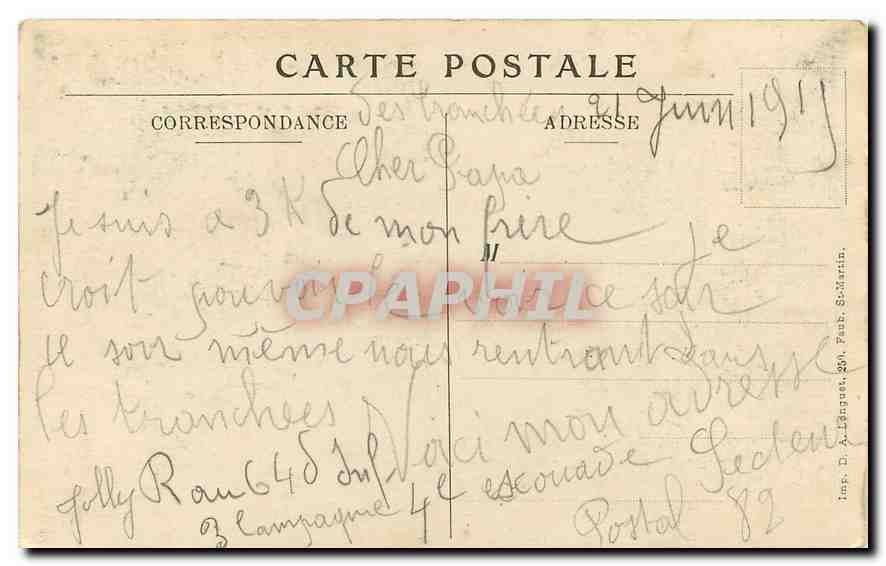 CARTE POSTALE
CORRESPONDANCE
ADRESSE
des tranchées 21 Juin 1915
Cher Papa
Je suis a 3 K de mon frère je
croit pouvoir le voir ce soir
ce soir même nous rentront dans
les tranchées Voici mon adresse
Jolly R au 64 d Inf
3 Campagnie 4e escouade Secteur
Postal 82
M
CPAPHIL
Imp. D. A. Longuet, 250, Faub. St-Martin.